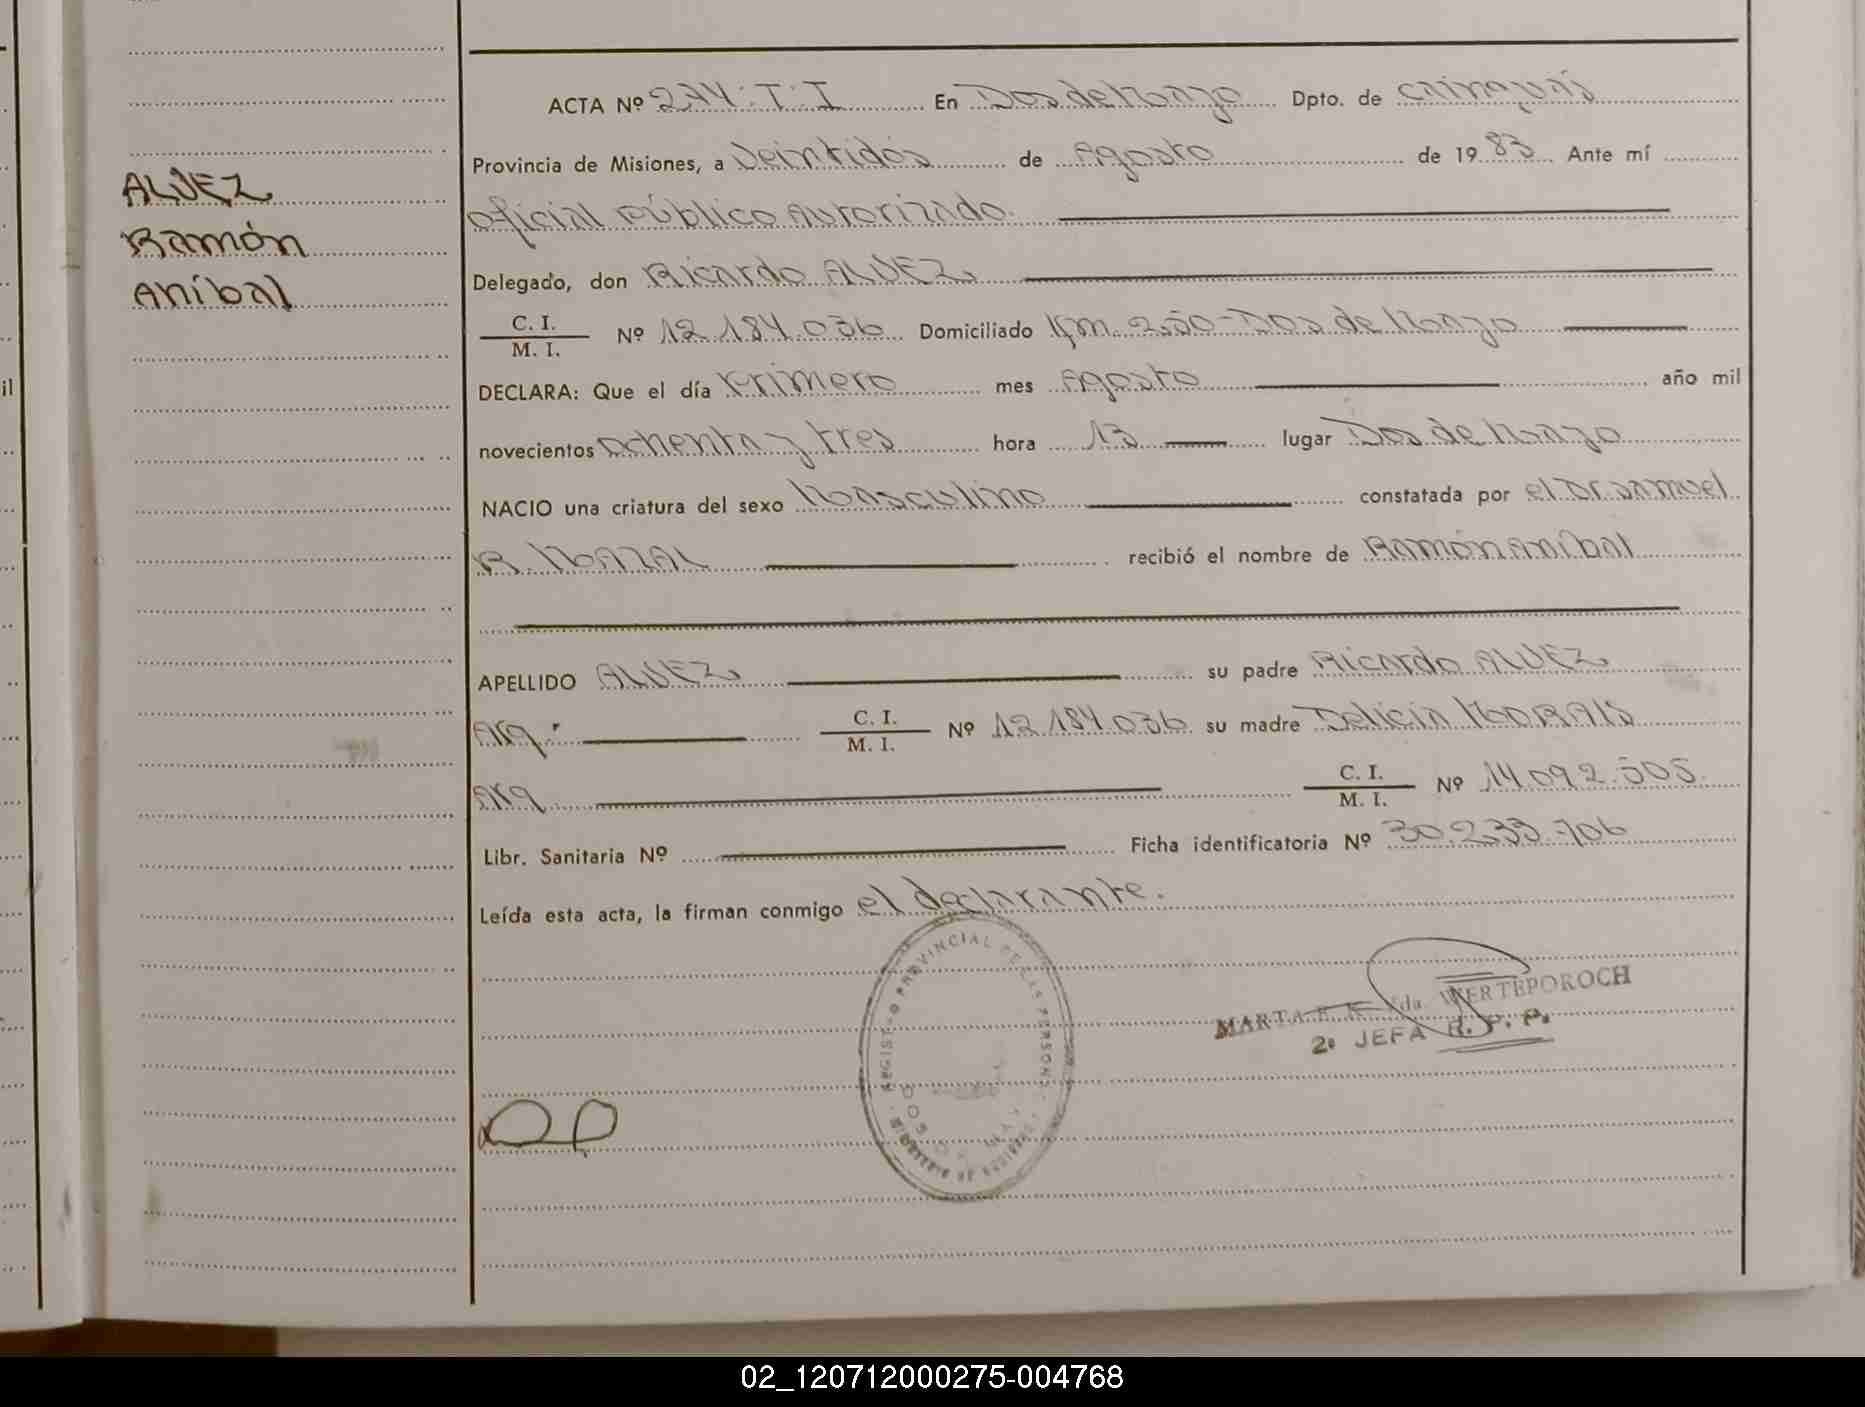 ALVEZ
Ramón
Aníbal
il
ACTA Nº 274. T. I En Dos de Mayo Dpto. de Cainguás
Provincia de Misiones, a Veintidós de Agosto de 1983 Ante mí
Oficial Público Autorizado.
Delegado, don Ricardo ALVEZ
C. I. / M. I. Nº 12.184.036 Domiciliado Km. 250 - Dos de Mayo
DECLARA: Que el día Primero mes Agosto año mil
novecientos ochenta y tres hora 13 lugar Dos de Mayo
NACIO una criatura del sexo Masculino constatada por el Dr. Samuel
R. recibió el nombre de Ramón Aníbal
APELLIDO ALVEZ su padre Ricardo ALVEZ
Arg. C. I. / M. I. Nº 12.184.036 su madre Delicia MORAIS
Arg C. I. / M. I. Nº 14.092.505.
Libr. Sanitaria Nº Ficha identificatoria Nº 30.233.706
Leída esta acta, la firman conmigo el declarante.
REGISTRO PROVINCIAL DE LAS PERSONAS
MARTA Vda. WERTEPOROCH
2º JEFA R. P. P.
02_120712000275-004768